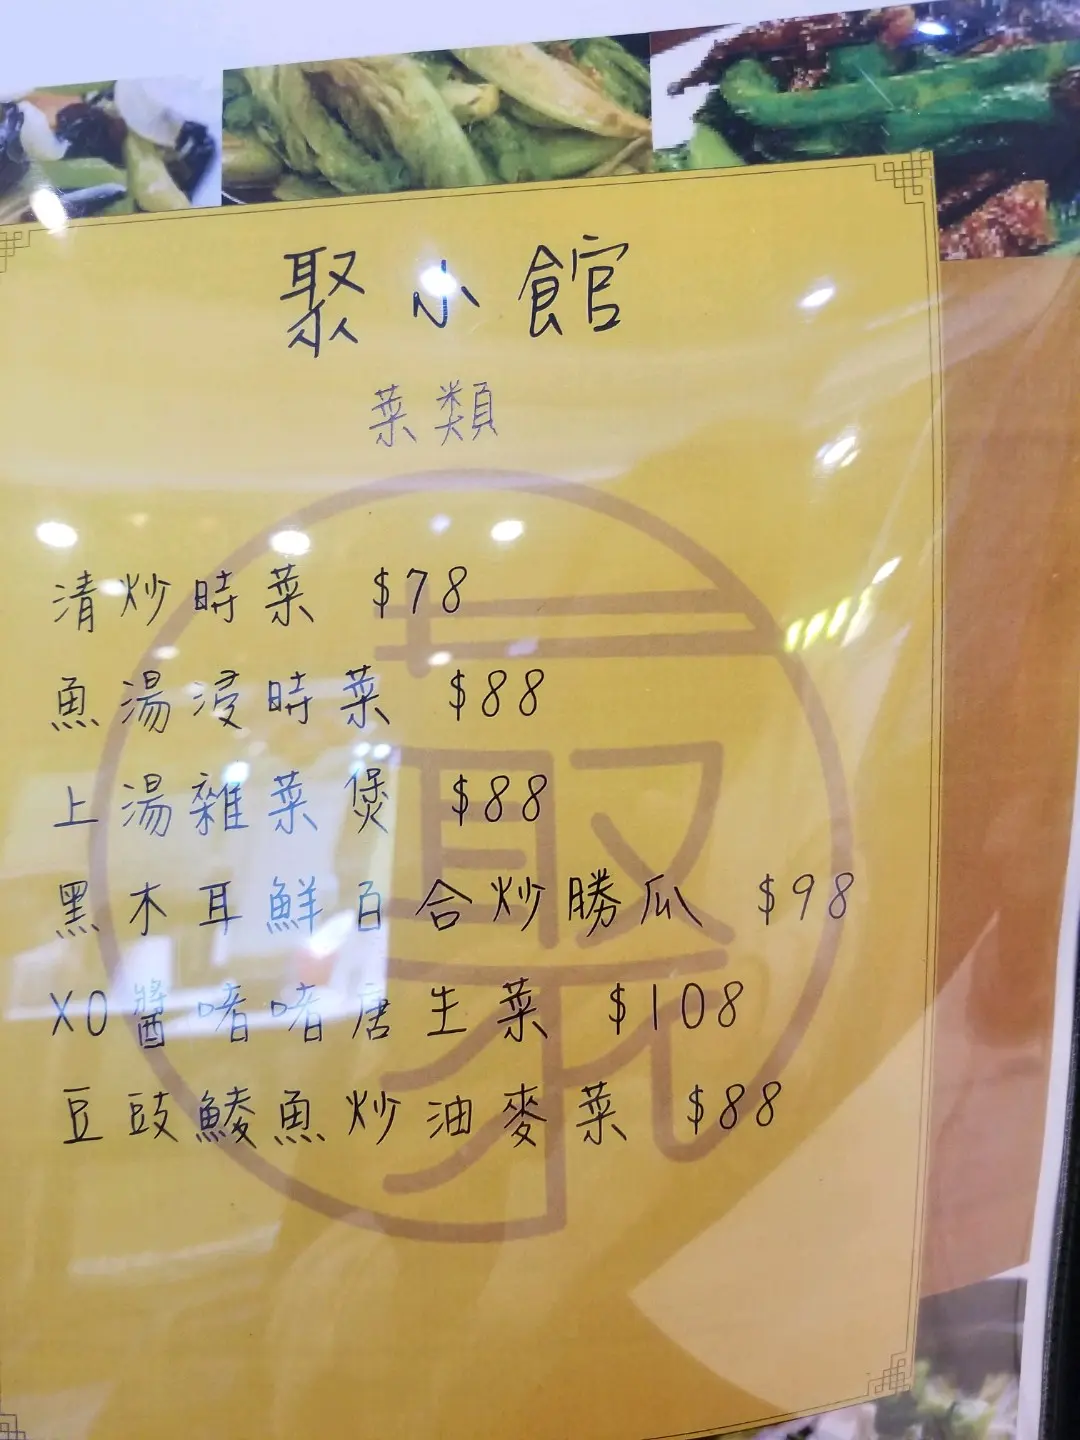 聚小館
菜類
清炒時菜 $78
魚湯浸時菜 $88
上湯雜菜煲 $88
黑木耳鮮百合炒勝瓜 $98
XO醬啫啫唐生菜 $108
豆豉鯪魚炒油麥菜 $88
聚